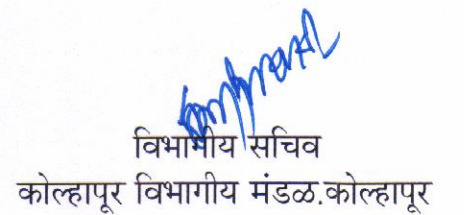 विभागीय सचिव
कोल्हापूर विभागीय मंडळ.कोल्हापूर